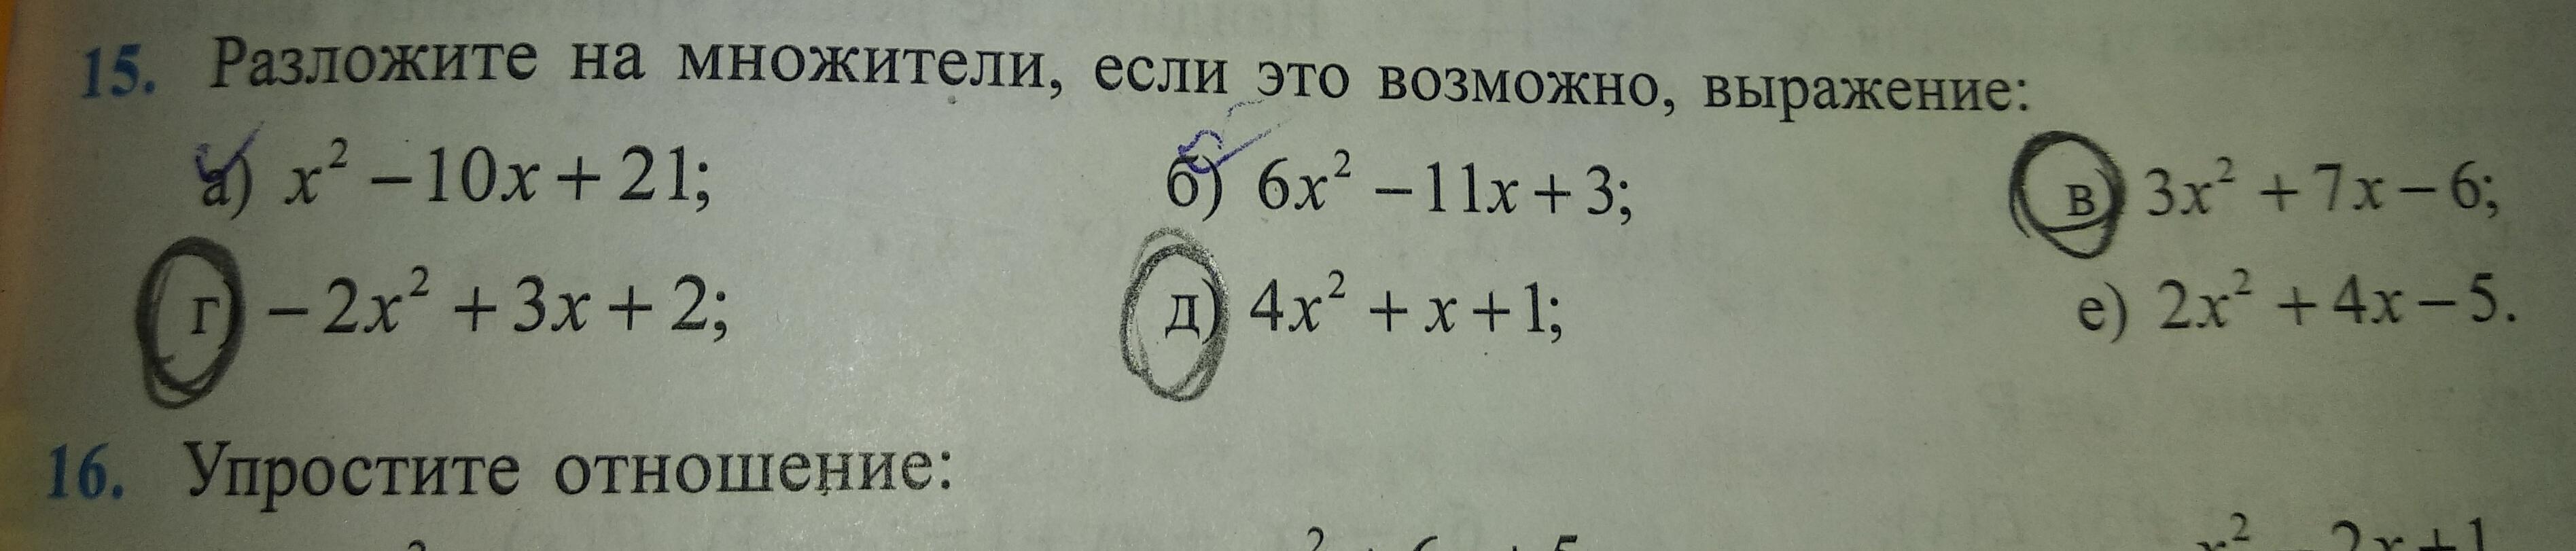 15. Разложите на множители, если это возможно, выражение:
а) x² − 10x + 21; б) 6x² − 11x + 3; в) 3x² + 7x − 6;
г) − 2x² + 3x + 2; д) 4x² + x + 1; е) 2x² + 4x − 5.
16. Упростите отношение: